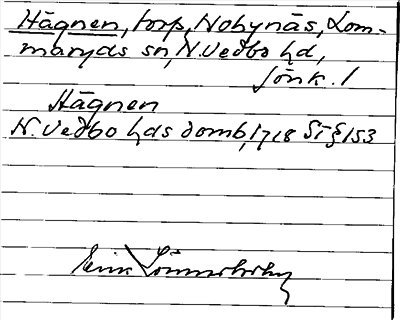 Hägnen, torp, Nobynäs, Lom-
maryds sn, N. Vedbo hd,
Jönk. l
Hägnen
N. Vedbo hds domb, 1718 St § 153
Erik